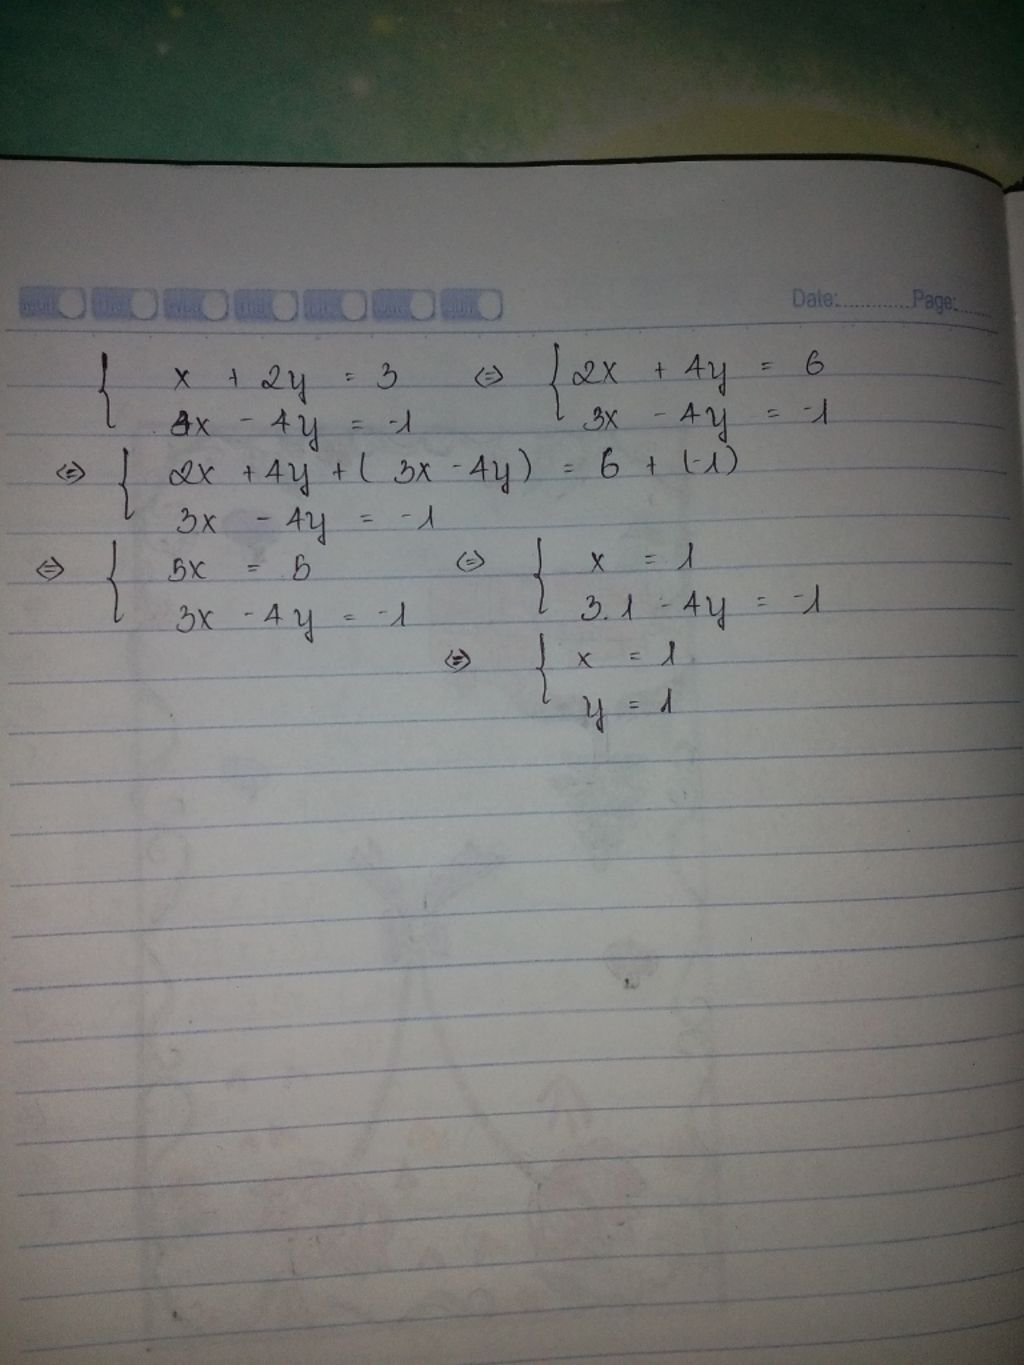 Date:............Page:......
{ x + 2y = 3 <=> { 2x + 4y = 6
3x - 4y = -1 3x - 4y = -1
<=> { 2x + 4y + ( 3x - 4y) = 6 + (-1)
3x - 4y = -1
<=> { 5x = 5 <=> { x = 1
3x - 4y = -1 3.1 - 4y = -1
<=> { x = 1
y = 1